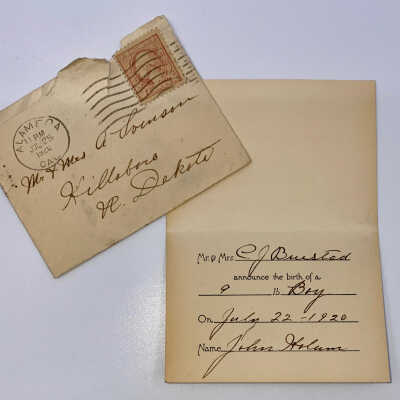 ALAMEDA
1 PM
CAL
Mr & Mrs A Svenson
Hillsboro
N. Dakota
Mr. & Mrs. C J Buistad
announce the birth of a
9 lb. Boy
On July 22 - 1920
Name John Holum